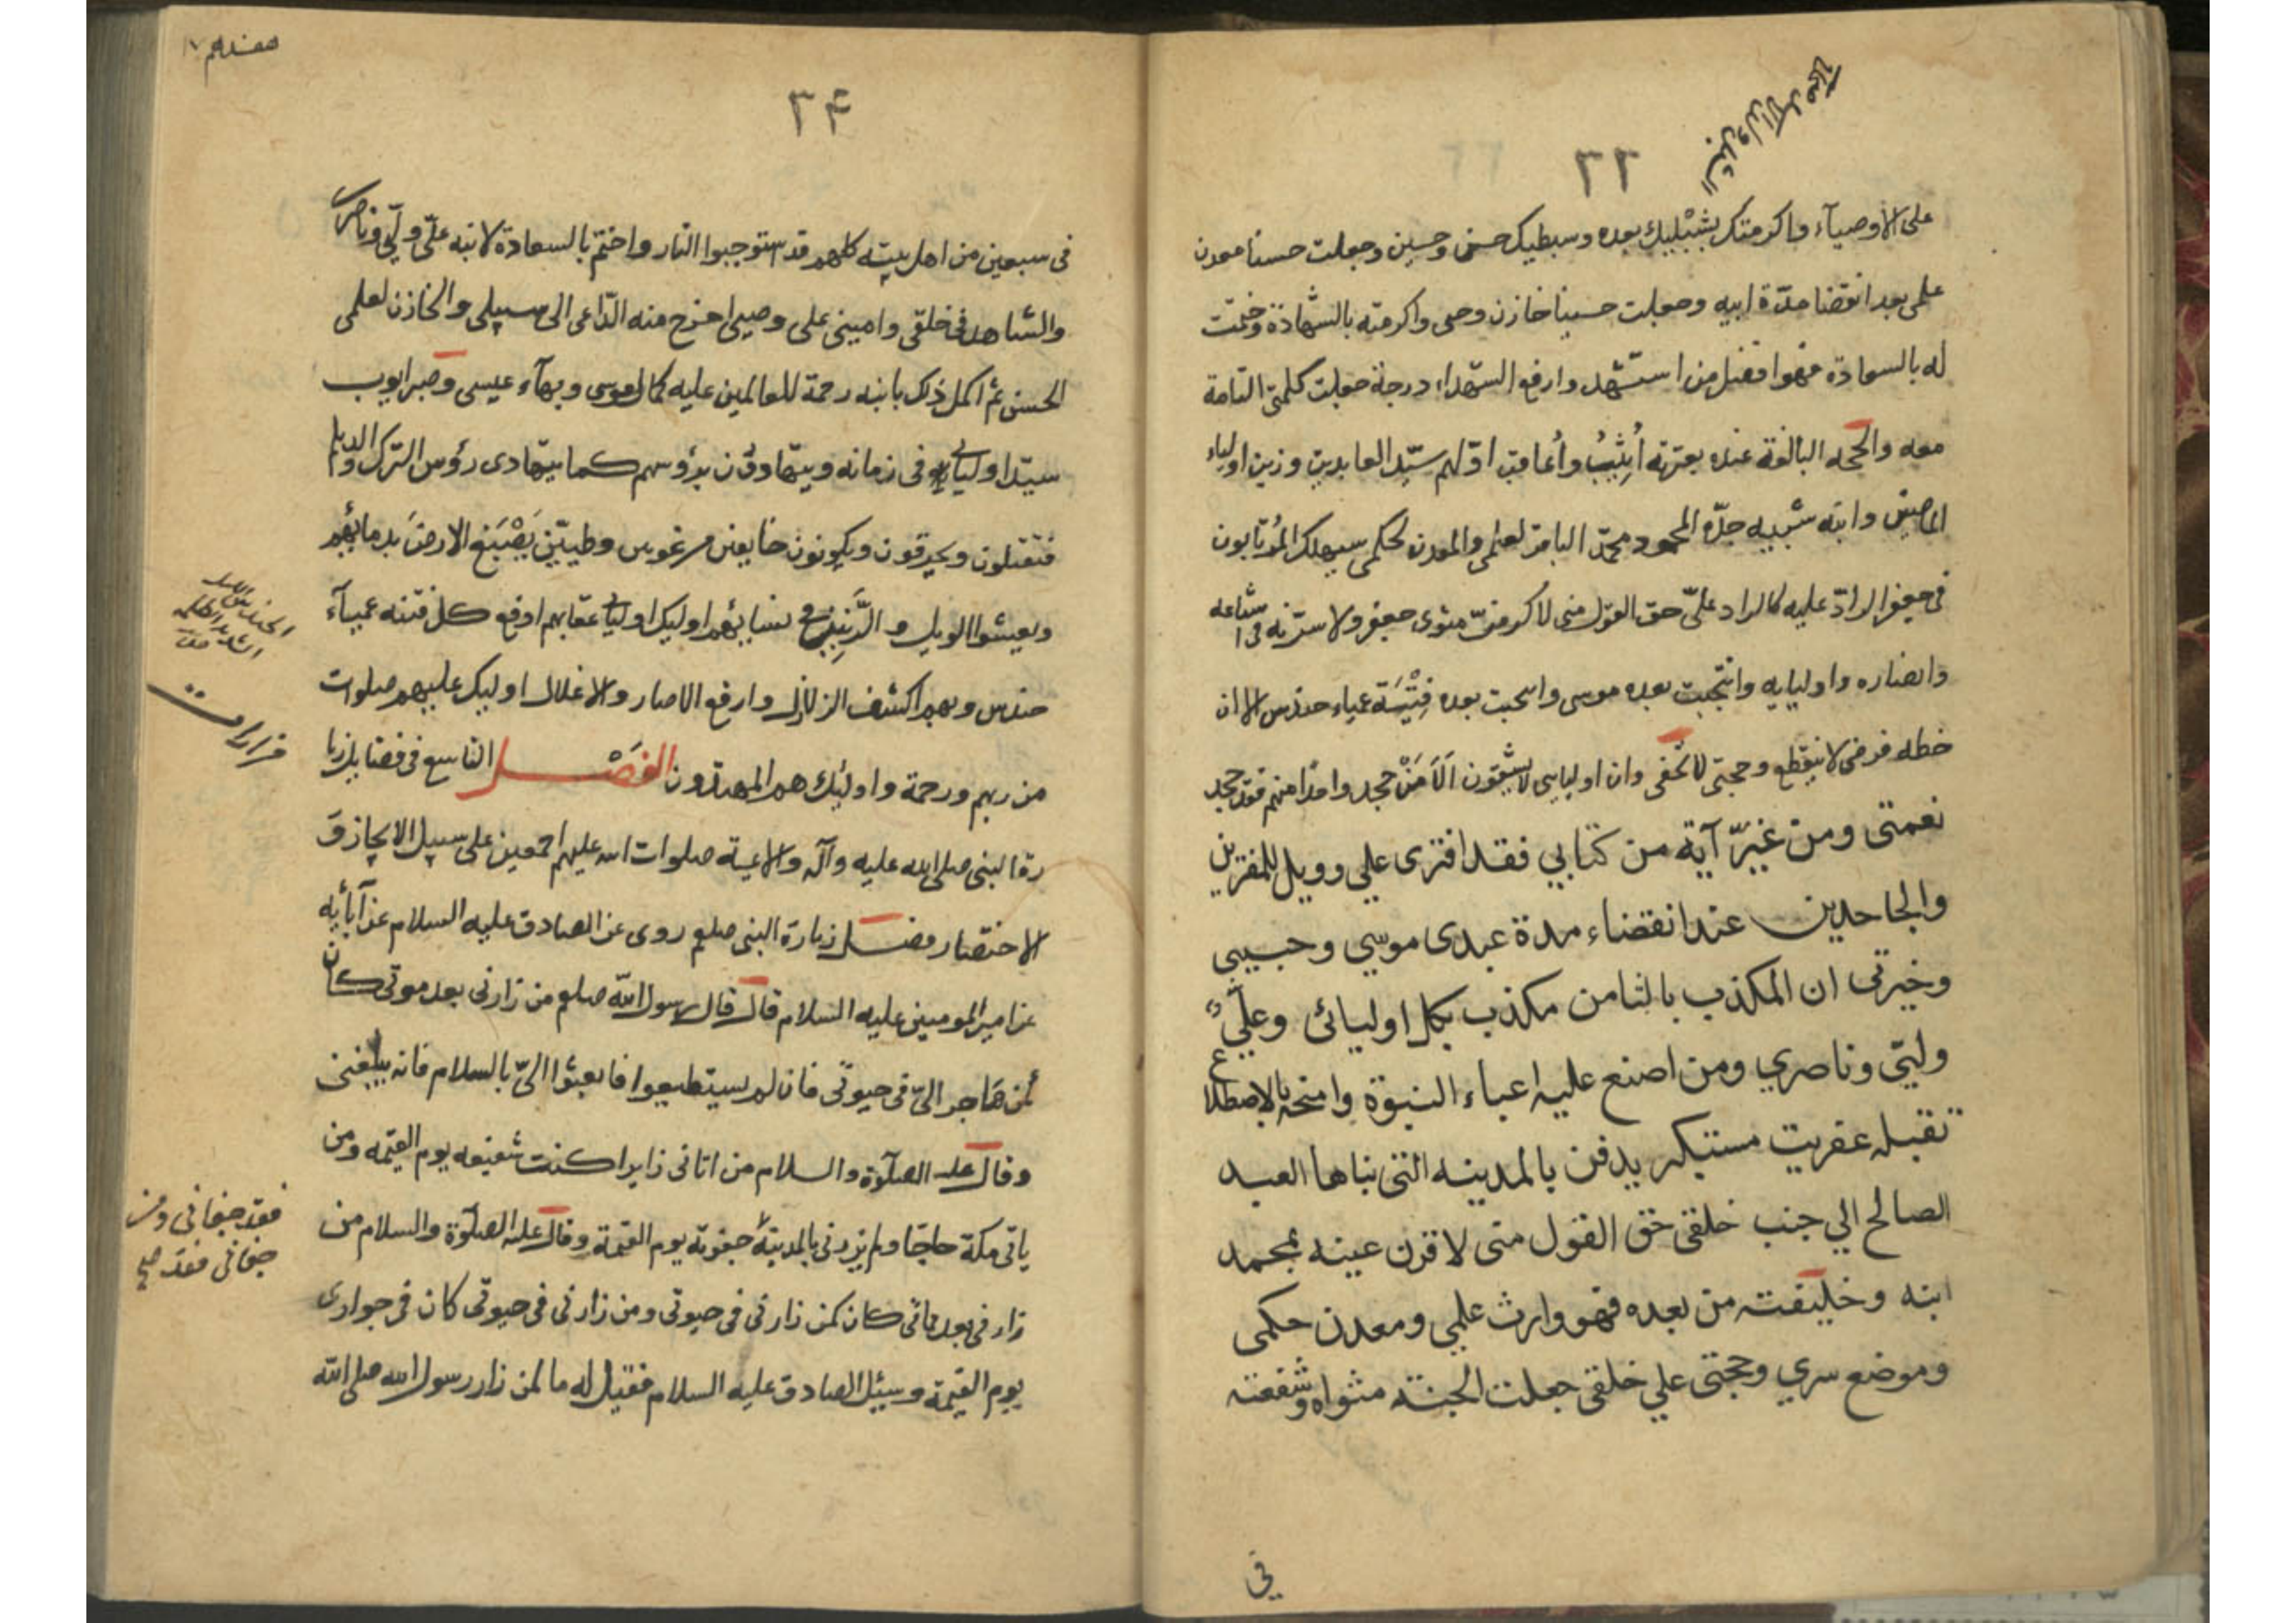 ٣٣
الشبل ولد الاسد صحاح
على الاوصيآء واكرمتك بشبْليك بعده وسبطيك حسن وحسين وجعلت حسنا معدن
علمى بعد انقضا مدّة ابيه وجعلت حسينا خازن وحيى واكرمته بالشّهادة وختمت
له بالسعادة فهو افضل من استشهد وارفع الشهداء درجة جعلت كلمتى التامة
معه والحجه البالغة عنده بعترته أثيبُ وأعاقب اوّلهم سيّد العابدين وزين اولياء
الماضين وابنه شبيه جدّه المحمود محمّد الباقر لعلمى والمعدن لحكمى سيهلك المُرتابون
فى جعفر الرادّ عليه كالراد علىّ حق القول منى لاكرمنّ مثوى جعفر ولاسرّنه فى اشياعه
وانصاره واوليايه وانتجبت بعده موسى وانتجبت بعده فِتْنَة عمياء حندس الا ان
خطه فرضى لا ينقطع وحجتى لا تخفى وان اوليايى لا يشقون اَلَا مَنْ جحد واحدًا منهم فقد جحد
نعمتى ومن غيّر آية من كتابي فقد افترى علي وويل للمفترين
والجاحدين عند انقضاء مدة عبدى موسي وحبيبي
وخيرتى ان المكذب بالثامن مكذب بكل اوليائى وعليّ
وليّى وناصري ومن اضع عليه اعباء النبوة وامنحه بالاضطلاع
تقبله عفريت مستكبر يدفن بالمدينه التى بناها العبد
الصالح الي جنب خلقى حق القول منى لاقرن عينه بمحمد
ابنه وخليفته من بعده فهو وارث علمي ومعدن حكمى
وموضع سري وحجتى علي خلقى جعلت الجنة مثواه وشفعته
في
هفدهم ١٧
٣۴
فى سبعين من اهل بيته كلهم قد استوجبوا النار واختم بالسعادة لابنه علىّ وليّى وناصرى
والشاهد فى خلقى وامينى على وحيى اخرج منه الدّاعى الى سبيلى والخازن لعلمى
الحسن ثم اكمل ذلك بابنه رحمة للعالمين عليه كمال موسى وبهآء عيسى وصبر ايوب
سيّد اوليايى فى زمانه ويتهادون برؤوسهم كما يتهادى رؤس الترك والديلم
فتقتلون ويحرقون ويكونون خايفين مرعوبين وطيبّين يَصْبَغ الارض بدمايهم
ويعيشوا الويل و الرَّنِين فى نسايهم اوليك اوليايى عقابهم ادفع كل فتنه عميآء
حندس وبهم اكشف الزلازل وارفع الاصار والاغلال اوليك عليهم صلوات
من ربهم ورحمة واولئك هم المهتدون الفصْــل التاسع فى فضايل زيا
رة النبى صلى الله عليه وآله والايمة صلوات الله عليهم اجمعين على سبيل الايجاز و
الاختصار فضل زيارة النبى صلعم روى عن الصادق عليه السلام عن آبايه
عن امير المومنين عليه السلام قال قال رسول الله صلعم من زارنى بعد موتى كان
كمن هاجر الىّ فى حيوتى فان لم يستطيعوا فابعثوا الىّ بالسلام فانه يبلغنى
وقال عليه الصلوة والسلام من اتانى زايرا كنت شفيعه يوم القيمه ومن
ياتى مكة حاجّا ولم يزرنى بالمدينة جفوته يوم القيمة وقال عليه الصلوة والسلام من
زارنى بعد مماتى كان كمن زارنى فى حيوتى ومن زارنى فى حيوتى كان فى جوارى
يوم القيمة وسئل الصادق عليه السلام فقيل له ما لمن زار رسول الله صلى الله
الحندس الليل
الشديد الظلمة
زيارات
فقد جفانى ومن
جفانى فقد صح